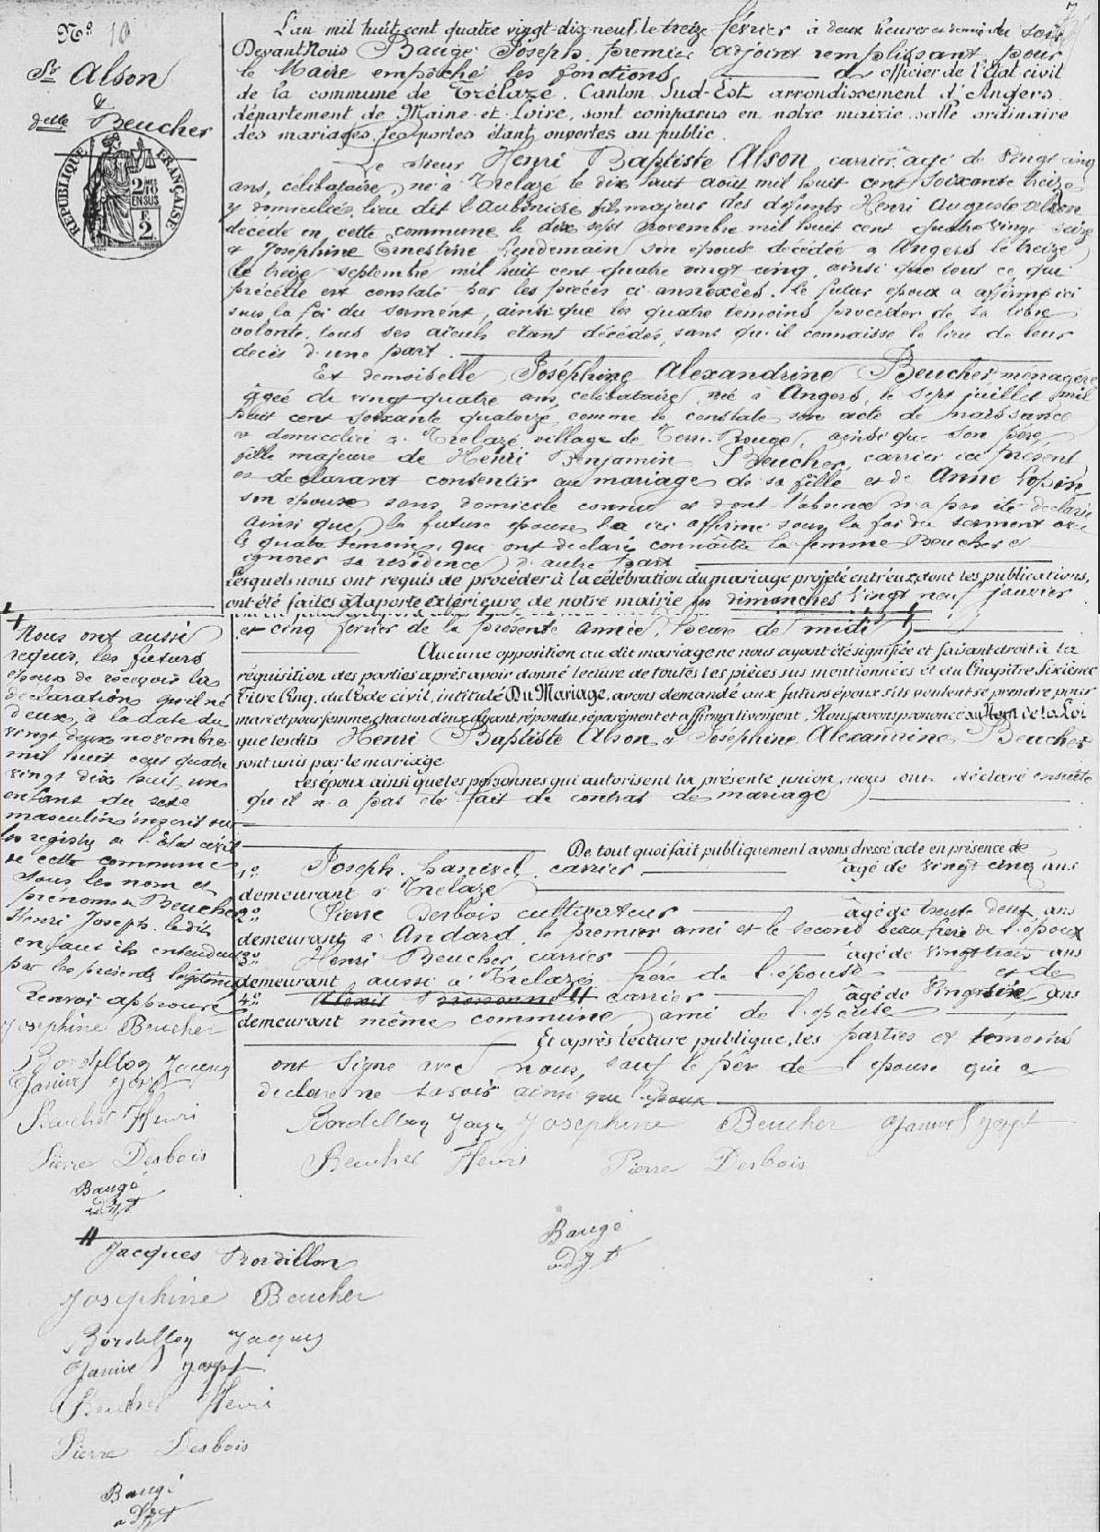 N° 10
Sr Alson
&
delle Beucher
RÉPUBLIQUE FRANÇAISE
2 EN SUS
F 2
L'an mil huit cent quatre vingt-dix-neuf, le treize février à deux heures du soir
Devant Nous Baugé Joseph, premier adjoint remplissant pour
le Maire empêché les fonctions d'officier de l'État civil
de la commune de Trélazé, Canton Sud-Est arrondissement d'Angers
département de Maine-et-Loire, sont comparus en notre mairie salle ordinaire
des mariages, les portes étant ouvertes au public.
Le sieur Henri Baptiste Alson, carrier, âgé de vingt cinq
ans, célibataire, né à Trélazé le dix huit août mil huit cent soixante treize
y domicilié, lieu dit l'Aubinière fils majeur des défunts Henri Auguste Alson
décédé en cette commune le dix sept novembre mil huit cent quatre vingt seize
& Joséphine Ernestine Vendemain son épouse décédée à Angers le treize
le treize septembre mil huit cent quatre vingt cinq, ainsi que tout ce qui
précède est constaté par les pièces ci annexées. Le futur époux a affirmé ici
sous la foi du serment, ainsi que les quatre témoins procéder de sa libre
volonté, tous ses aïeuls étant décédés, sans qu'il connaisse le lieu de leur
décès d'une part.
Et demoiselle Joséphine Alexandrine Beucher, ménagère
âgée de vingt quatre ans, célibataire, née à Angers, le sept juillet mil
huit cent soixante quatorze, comme le constate son acte de naissance
& domiciliée à Trélazé, village de Terre Rouge, ainsi que son père,
fille majeure de Henri Benjamin Beucher, carrier ici présent
et déclarant consentir au mariage de sa fille et de Anne Lopin
son épouse sans domicile connu et dont l'absence n'a pas été déclarée
ainsi que la future épouse l'a ici affirmé sous la foi du serment avec
les quatre témoins, qui ont déclaré connaître la femme Beucher &
ignorer sa résidence d'autre part
Lesquels nous ont requis de procéder à la célébration du mariage projeté entr'eux, dont les publications
ont été faites à la porte extérieure de notre mairie les dimanches vingt neuf janvier
et cinq février de la présente année, heure de midi
Aucune opposition au dit mariage ne nous ayant été signifiée et faisant droit à la
réquisition des parties après avoir donné lecture de toutes les pièces sus mentionnées et du Chapitre Sixième
Titre Cinq, du Code civil, intitulé Du Mariage, avons demandé aux futurs époux s'ils veulent se prendre pour
mari et pour femme, chacun d'eux ayant répondu séparément et affirmativement, Nous avons prononcé au Nom de la Loi
que lesdits Henri Baptiste Alson & Joséphine Alexandrine Beucher
sont unis par le mariage
Les époux ainsi que les personnes qui autorisent la présente union, nous ont déclaré ensuite
qu'il n'a pas été fait de contrat de mariage
De tout quoi fait publiquement avons dressé acte en présence de
1° Joseph carrier âgé de vingt cinq ans
demeurant à Trélazé
2° Pierre Desbois cultivateur âgé de trente deux ans
demeurant à Andard, le premier ami et le second beau frère de l'époux
3° Henri Beucher, carrier âgé de vingt trois ans
demeurant aussi à Trélazé, frère de l'épouse et de
4° carrier âgé de vingt six ans
demeurant même commune ami de l'épouse
Et après lecture publique, les parties et témoins
ont signé avec nous, sauf le père de l'épouse qui a
déclaré ne savoir ainsi que l'époux
Bordillon Joséphine Beucher
Beucher Henri Pierre Desbois
Baugé
adjt
Nous ont aussi
requis, les futurs
époux de recevoir la
déclaration qu'il né
d'eux, à la date du
vingt deux novembre
mil huit cent quatre
vingt dix huit, un
enfant du sexe
masculin inscrit sur
les registres de l'État civil
de cette commune
sous les nom et
prénoms de Beucher
Henri Joseph, ledit
enfant ils entendent
par les présentes légitimer
Renvoi approuvé
Joséphine Beucher
Bordillon Jacques
Beucher Henri
Pierre Desbois
Baugé
adjt
Jacques Bordillon
Josephine Beucher
Bordillon Jaques
Beucher Henri
Pierre Desbois
Baugé
adjt